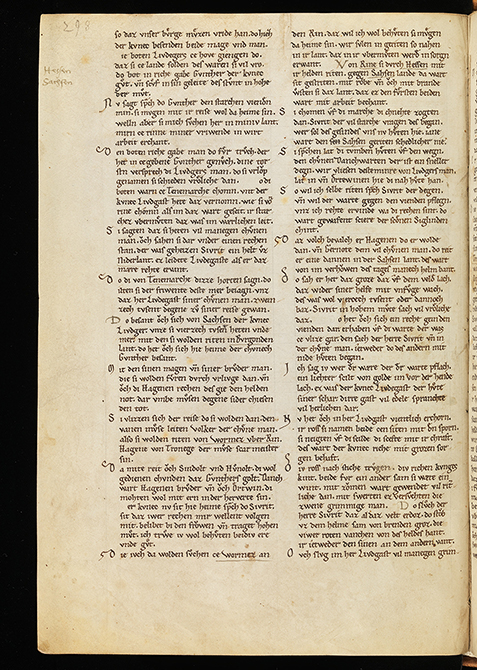 298
Hessen
Sachsen
so daz vnser bvrge mvzen vride han. do hiez
der kvnec besenden beide mage vnd man.
ir boten Livdegers ce hove giengen do.
daz si ce lande solden des waren si vil vro.
do bot in riche gabe Gvnther der kvnec
gvt. vñ scvf in sin geleite des stvnt in hohe
der mvt.
N v sagt sprach do Gvnther den starchen vienden
min. si mvgen mit ir reise wol da heime sin.
wellen aber si mich svchen her in miniv lant.
mirn ce rinne miner vriwende in wirt
arbeit erchant.
D en boten riche gabe man do fvr trvch. der
het in ce gebene Gvnther gnvch. dine tor
sten versprechen di Livdgers man. do si vrlop
genamen si schieden vroliche dan. do di
boten warn ce Tenemarche chomen. vnt der
kvnec Livdgast hete daz vernomen. wie si vō
rine chomen als im daz wart geseit. ir starc
chez vbermvten daz was im wærlichen leit.
S i sagten daz si heten vil manegen chvnen
man. och sahen si dar vnder einen recken
stan. der was geheizen Sivrit ein helt vz
Niderlant. ez leidete Livdgaste als er daz
mære rehte ervant.
D o di von Tenemarche dizze horten sagn. do
ilten si der frivnde deste mer beiagn. vnz
daz her Livdegast siner chvnen man. zwein
zech tvsent degene zv siner reise gewan.
D o besant och sich von Sachsen der kvnec
Livdger. vnz si vierzech tvsent heten vnde
mer. mit den si wolden riten in Bvrgonden
lant. do het och sich hie heime der chvnech
Gvnther besant.
M it den sinen magen vñ siner brvder man.
die si wolden fvren dvrch vrlivge dan. vñ
och di Hagenen rechen des gie den helden
not. dar vmbe mvsen degene sider chiesen
den tot.
S i vlizzen sich der reise do si wolden dannen.
vanen mvse leiten Volker der chvne man.
also si wolden riten von Wormez vber Rin.
Hagene von Tronege der mvse scarmeister
sin.
D a mite reit och Sindolt vnd Hvnolt. di wol
gedienen chvnden daz Gvnthers golt. Danch
wart Hagenen brvder vñ och Ortwin. di
mohten wol mit ern in der herverte sin.
er kvnec nv sit hie heime sprach do Sivrit.
sit daz iwer rechen mir wellent volgen
mit. belibet bi den frowen vñ traget hohen
mvt. ich trwe iv wol behvten beidiv ere
vnde gvt.
D ie iwch da wolden svchen ce Wormez an
den Rin. daz wil ich wol behvten si mvgen
da heime sin. wir svlen in geriten so nahen
in ir lant. daz in ir vbermvten werd in sorgen
erwant. Von Rine si dvrch Hessen mit
ir helden riten. gegen Sahsen lande da wart
sit gestriten. mit robe vñ och mit brande
wsten si daz lant. daz ez den fvrsten beiden
wart mit arbeit bechant.
S i chomen vf di marche di chnehte zogten
dan. Sivrit der vil starche vragen des began.
wer sol des gesindes vns nv hvten hie. iane
wart den Sahsen geriten schedlicher nie.
S i sprachen lat di tvmben hvten vf den wegen.
den chvnen Danchwarten der ist ein sneller
degn. wir vliesen deste minre von Livdgers man.
lat in vñ Ortwinen hie di nahhvte han.
S o wil ich selbe riten sprach Sivrit der degen.
vñ wil der warte gegen den vienden pflegn.
vnz ich rehte ervinde wa di rechen sint. do
wart gewafent sciere der scônen Siglinden
chint.
D az volch bevalch er Hagenen do er wolde
dan. vñ Gernote dem vil chvnen man. do reit
er eine dannen in der Sahsen lant. des wart
von im verhowen des tages manech helm bant.
D o sah er her daz groze daz vf dem velde lach.
daz wider siner helfe mit vnfvge wach.
des was wol vierzech tvsent oder dannoch
baz. Sivrit in hohem mvte sach vil vroliche
daz. Do hete och sich ein rechte gein den
vienden dan erhaben vf di warte der was
ce vlize gar. den sach der herre Sivrit vñ in
der chvne man. ietweder do des andern mit
nide hvten began.
I ch sag iv wer der warte der warte pflach.
ein liehter scilt von golde im vor der hende
lach. ez was der kvnec Livdgast der hvte
siner schar. dirre gast vil edele sprancte
vil herlichen dar.
N v het och in her Livdgast vientlich erchorn.
ir ross si namen beide cen siten mit den sporn.
si neigten vf di scilde di scefte mit ir chraft.
des wart der kvnec riche mit grozen sor
gen behaft.
D iv ross nach stiche trvgen. div richen kvneges
kint. beide fvr ein ander sam si wæte ein
wint. mit zômen wart gewendet vil rit
liche dan. mit swerten ez versvchten die
zwene grimmige man. Do slvch der
herre Sivrit daz al daz velt erdoz. do stob
vz dem helme sam von brenden groz. die
viwer roten vanchen von des heldes hant.
ir ietweder den sinen an dem andern vant.
O vch slvg im her Livdgast vil manegen grim